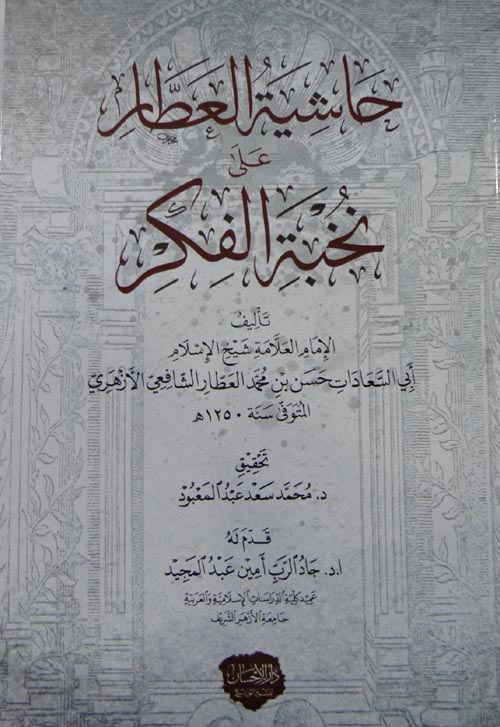 حَاشِيَةُ العَطَّارِ
عَلَى
نُخْبَةِ الفِكَرِ
تَأْلِيفُ
الإِمَامِ العَلَّامَةِ شَيْخِ الإِسْلَامِ
أَبِي السَّعَادَاتِ حَسَنِ بْنِ مُحَمَّدٍ العَطَّارِ الشَّافِعِيِّ الأَزْهَرِيِّ
المُتَوَفَّى سَنَة ١٢٥٠هـ
تَحْقِيق
د. مُحَمَّد سَعْد عَبْدُ المَعْبُود
قَدَّمَ لَهُ
أ.د. جَادُ الرَّبِّ أَمِين عَبْدُ المَجِيد
عَمِيد كُلِّيَّةِ الدِّرَاسَاتِ الإِسْلَامِيَّةِ وَالعَرَبِيَّةِ
جَامِعَة الأَزْهَرِ الشَّرِيف
دَارُ الإِحْسَان
للنشر والتوزيع